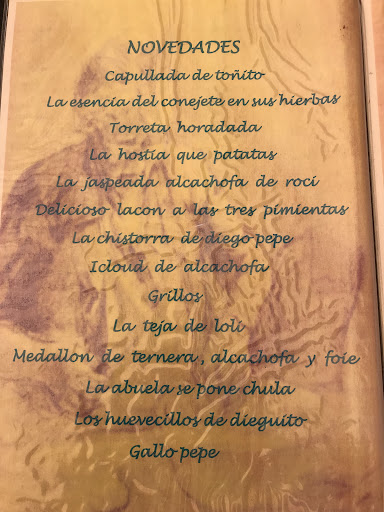 NOVEDADES
Capullada de toñito
La esencia del conejete en sus hierbas
Torreta horadada
La hostia que patatas
La jaspeada alcachofa de roci
Delicioso lacon a las tres pimientas
La chistorra de diego pepe
Icloud de alcachofa
Grillos
La teja de loli
Medallon de ternera, alcachofa y foie
La abuela se pone chula
Los huevecillos de dieguito
Gallo pepe